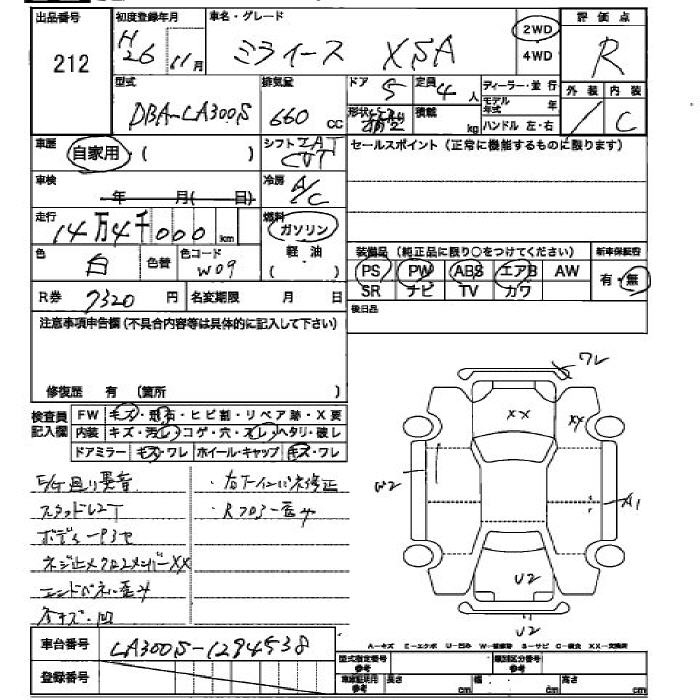 出品番号 初度登録年月 車名・グレード 評価点
212 H26 11月 ミライース XSA 2WD 4WD R
型式 排気量 ドア 5 定員 4人 ディーラー・並行 外装 内装
DBA-LA300S 660cc 形状 積載 kg モデル年式 年 ハンドル 左・右 / C
車歴 自家用 ( ) シフト IAT CVT セールスポイント(正常に機能するものに限ります)
車検 年 月( 日) 冷房 A/C
走行 14万4千000km 燃料 ガソリン
色 白 色替 色コード W09 軽油 ( ) 装備品(純正品に限り○をつけてください) 新車保証書
PS PW ABS エアB AW 有・無
R券 7320円 名変期限 月 日 SR ナビ TV カワ
注意事項申告欄(不具合内容等は具体的に記入して下さい) 後日品
修復歴 有 (箇所 )
検査員記入欄 FW キズ・飛石・ヒビ割・リペア跡・X要
内装 キズ・汚レ・コゲ・穴・スレ・ヘタリ・破レ
ドアミラー キズ・ワレ ホイール・キャップ キズ・ワレ
ワレ
XX XX
W2 A1
U2
U2
E/G廻り異音
スタッドレスT
ボディー
ネジ止メクロスメンバーXX
エンドパネル歪み
キズ・凹
・Rフロアー歪み
車台番号 LA300S-1294538
登録番号
A-キズ E-エクボ U-凹み W-補修跡 S-サビ C-腐食 XX-交換済
型式指定番号 参考 類別区分番号 参考
車庫証明用 参考 長さ cm 幅 cm 高さ cm